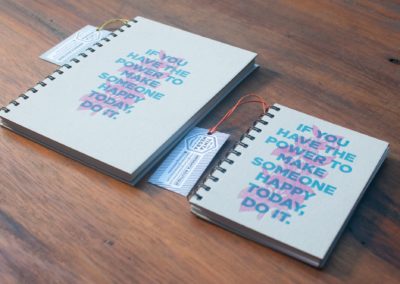 IF YOU
HAVE THE
POWER TO
MAKE
SOMEONE
HAPPY
TODAY,
DO IT.
IF YOU
HAVE THE
POWER TO
MAKE
SOMEONE
HAPPY
TODAY,
DO IT.